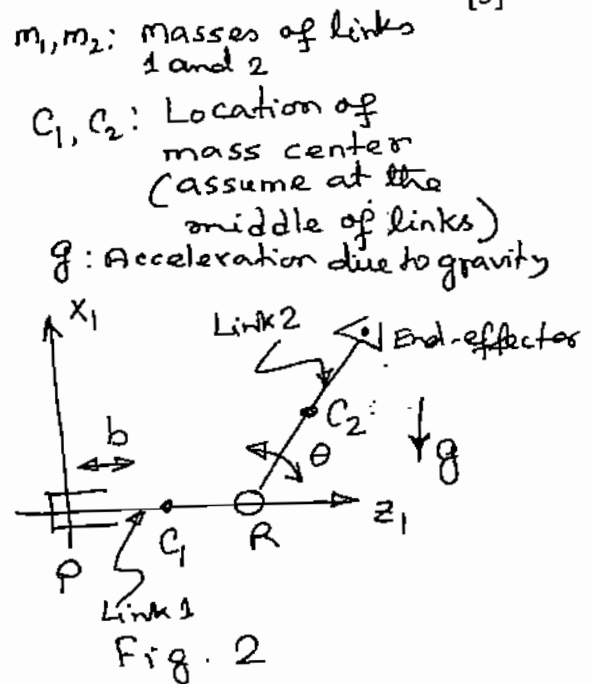 m₁, m₂: masses of links
1 and 2
C₁, C₂: Location of
mass center
(assume at the
middle of links)
g: Acceleration due to gravity
X₁
Link2
End-effector
C₂
b
θ
g
Z₁
C₁
R
P
Link1
Fig. 2